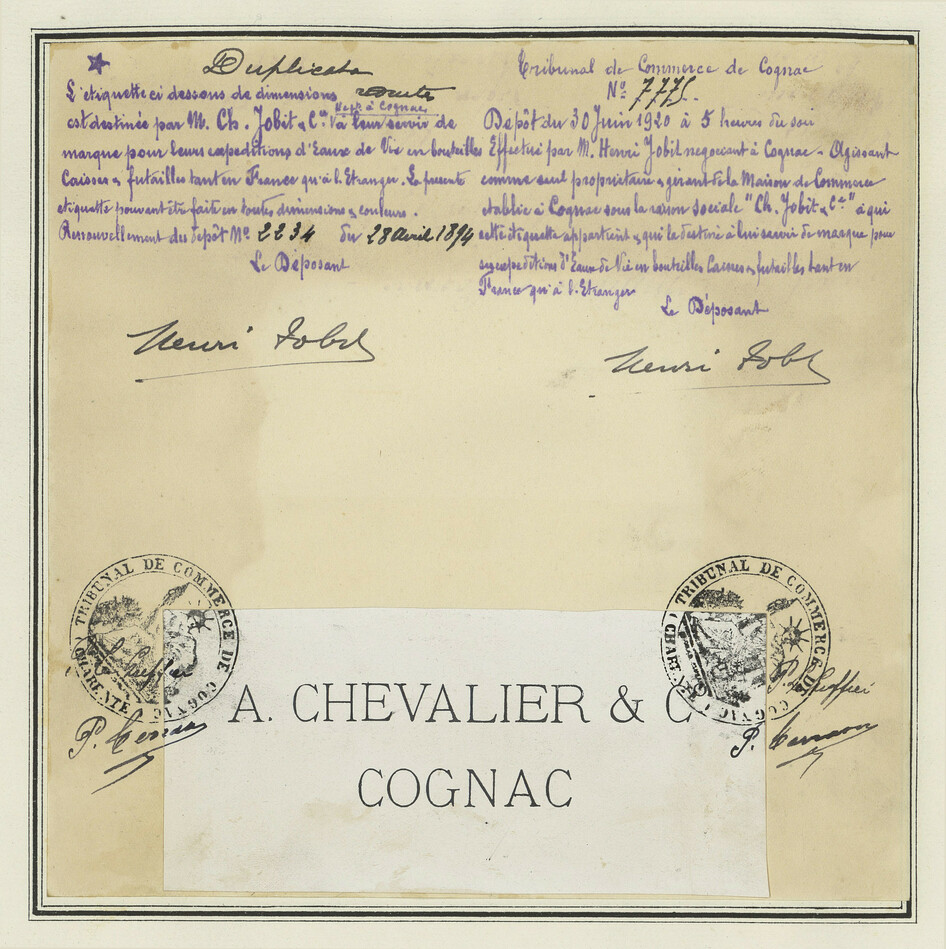 Duplicata
L'etiquette ci dessous de dimensions
Negt à Cognac
est destinée par M. Ch. Jobit & Cie à leur servir de
marque pour leurs expeditions d'Eaux de Vie en bouteilles
Caisses & futailles tant en France qu'à l'Etranger. La presente
etiquette pouvant être faite en toutes dimensions & couleurs.
Renouvellement du depôt No 2234 du 28 Avril 1894
Le Déposant
Henri Jobit
Tribunal de Commerce de Cognac
No 7775.
Depôt du 30 Juin 1920 à 5 heures du soir
Effectué par M. Henri Jobit negociant à Cognac - Agissant
comme seul propriétaire & gérant de la Maison de Commerce
etablie à Cognac sous la raison sociale "Ch. Jobit & Cie" à qui
cette étiquette appartient & qui la destine à lui servir de marque pour
ses expeditions d'Eaux de Vie en bouteilles Caisses & futailles tant en
France qu'à l'Etranger
Le Déposant
Henri Jobit
TRIBUNAL DE COMMERCE DE COGNAC
CHARENTE
TRIBUNAL DE COMMERCE DE COGNAC
CHARENTE
A. CHEVALIER & C
COGNAC